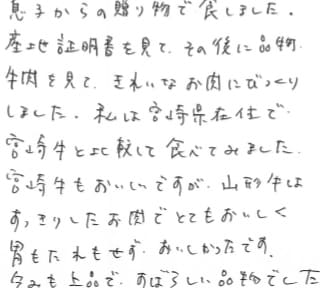 息子からの贈り物で食しました。
産地証明書を見て、その後に品物、
牛肉を見て、きれいなお肉にびっくり
しました。私は宮崎県在住で
宮崎牛と比較して食べてみました。
宮崎牛もおいしいですが、山形牛は
すっきりしたお肉でとてもおいしく
胃もたれもせず、おいしかったです。
包みも上品で、すばらしい品物でした